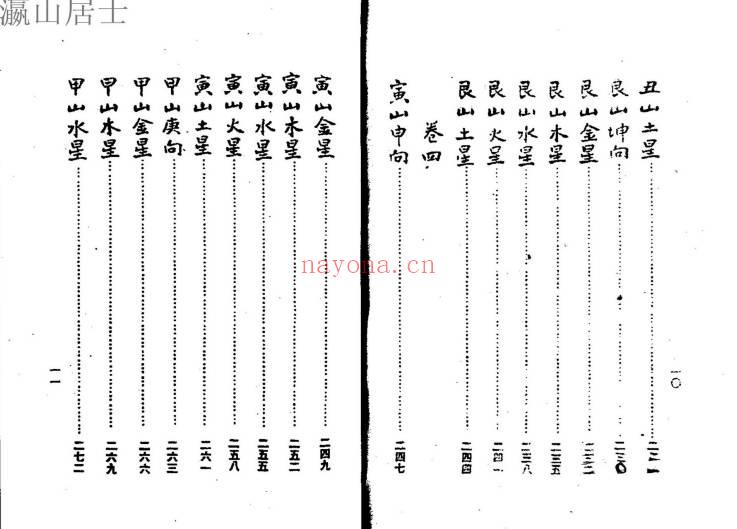 瀛山居士
丑山土星
艮山坤向……二三〇
艮山金星……二三二
艮山木星……二三五
艮山水星……二三八
艮山火星……二四一
艮山土星……二四四
卷四
寅山申向……二四七
一〇
寅山金星……二四九
寅山木星……二五二
寅山水星……二五五
寅山火星……二五八
寅山土星……二六一
甲山庚向……二六三
甲山金星……二六六
甲山木星……二六九
甲山水星……二七二
一一
nayona.cn